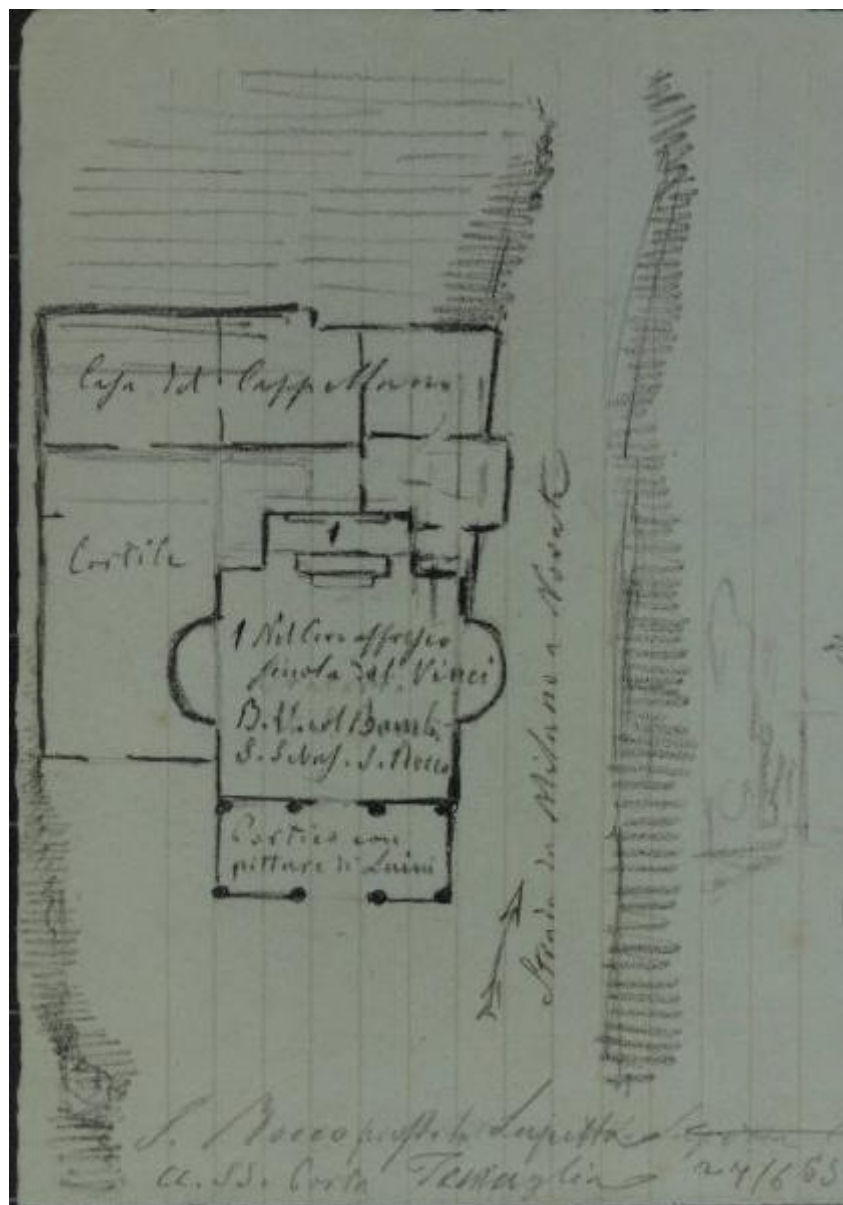 Casa del Cappellano
Cortile
1
1 Nel Coro affresco
scuola del Vinci
B. V. col Bamb.
S. Sebas. S. Rocco
Portico con
pitture di Luini
Strada da Milano a Novate
S. Rocco presso la
CC. SS. Porta Tenaglia 24/6 63